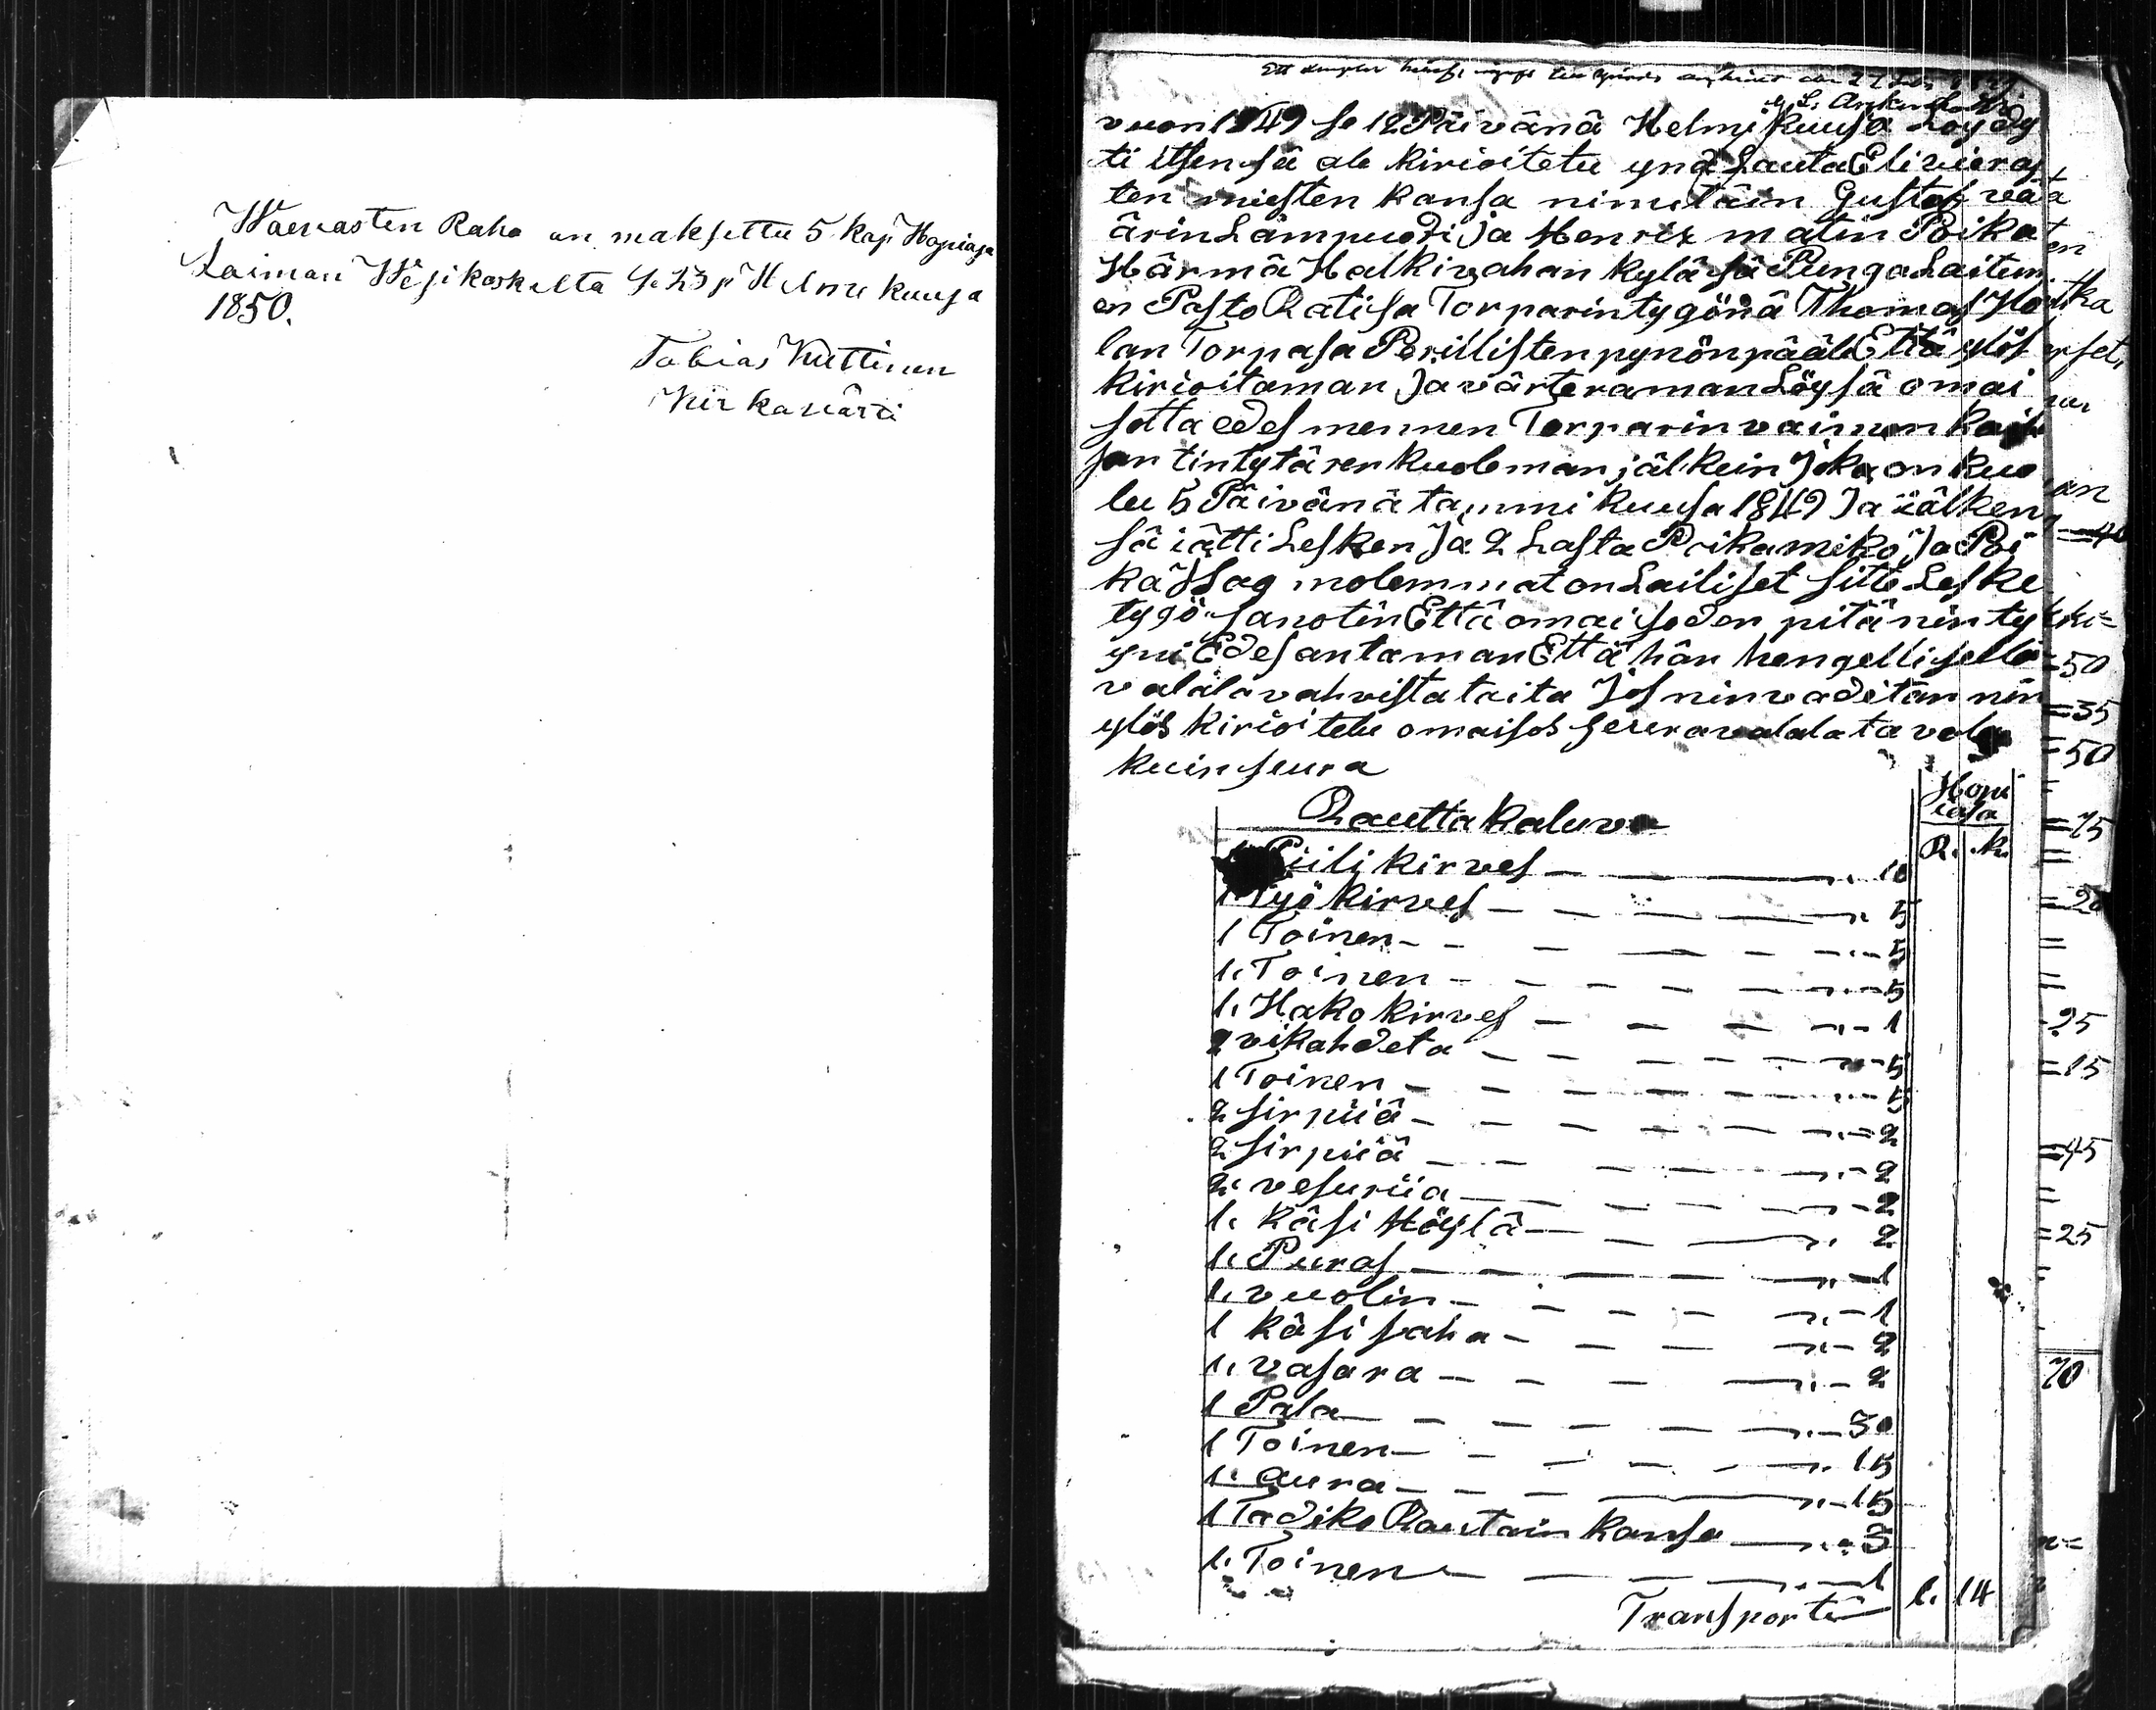 Waevasten Raha on maksettu 5 kap Hopiasa
Laiman Wesikoskelta Se 23 p Helme kuusa
1850.
Tobias Kuttinen
Kirkavärti
Ett
vuon 1849 se 12 Päivänä Helmi kuusa Löydy
ti itsensä ale kirioitetu ynä Lauta Eli vieras
ten miesten kansa nimitäin Gustaf
ärin Lämpuodi Ja Henrix matin Poika
Härmä Halkivahan kyläsä Punga Laitum
en Pasto Ratisa Torparintygönä Thomas
lan Torpasa Perillisten pynön pääle Että ylös
kirioitaman Ja värteraman Löysä omai
sotta edes mennen Torparin vaimon
jantintytären kuoleman jälkein Joka on kuo
lu 5 Päivänä tammi kuusa 1849 Ja iälken
sä iätti Lesken Ja 2 Lasta Poika mikö Ja Poi
ka Isag molemmat on Lailiset sitte Leske
tygö sanotin Että omaisoden pitä nin ty
yni Edes antaman Että hän hengellisellä
valala vahvista taita Jos nin vaditan nin
ylös kirioitetu omaisos seuravalala tavala
kuin seura
Hopi
iasa
Rautta kaluva
R. k.
Piili kirves — 10
1 Työ kirves — 5
1 Toinen — 5
1. Toinen — 5
1. Hako kirves — 1
2 vikahdeta — 5
1 Toinen — 5
2 sirpiiä — 2
2 sirpiiä — 2
2. vesuriia — 2
1. käsi Höylä — 2
1. Puras — 1
1. vuolin — 1
1 käsi saha — 2
1. vasara — 2
1 Pata — 30
1 Toinen — 15
1. aura — 15
1 Tadiko Rautain kansa — 3
1. Toinen — 1
Transporti 1. 14